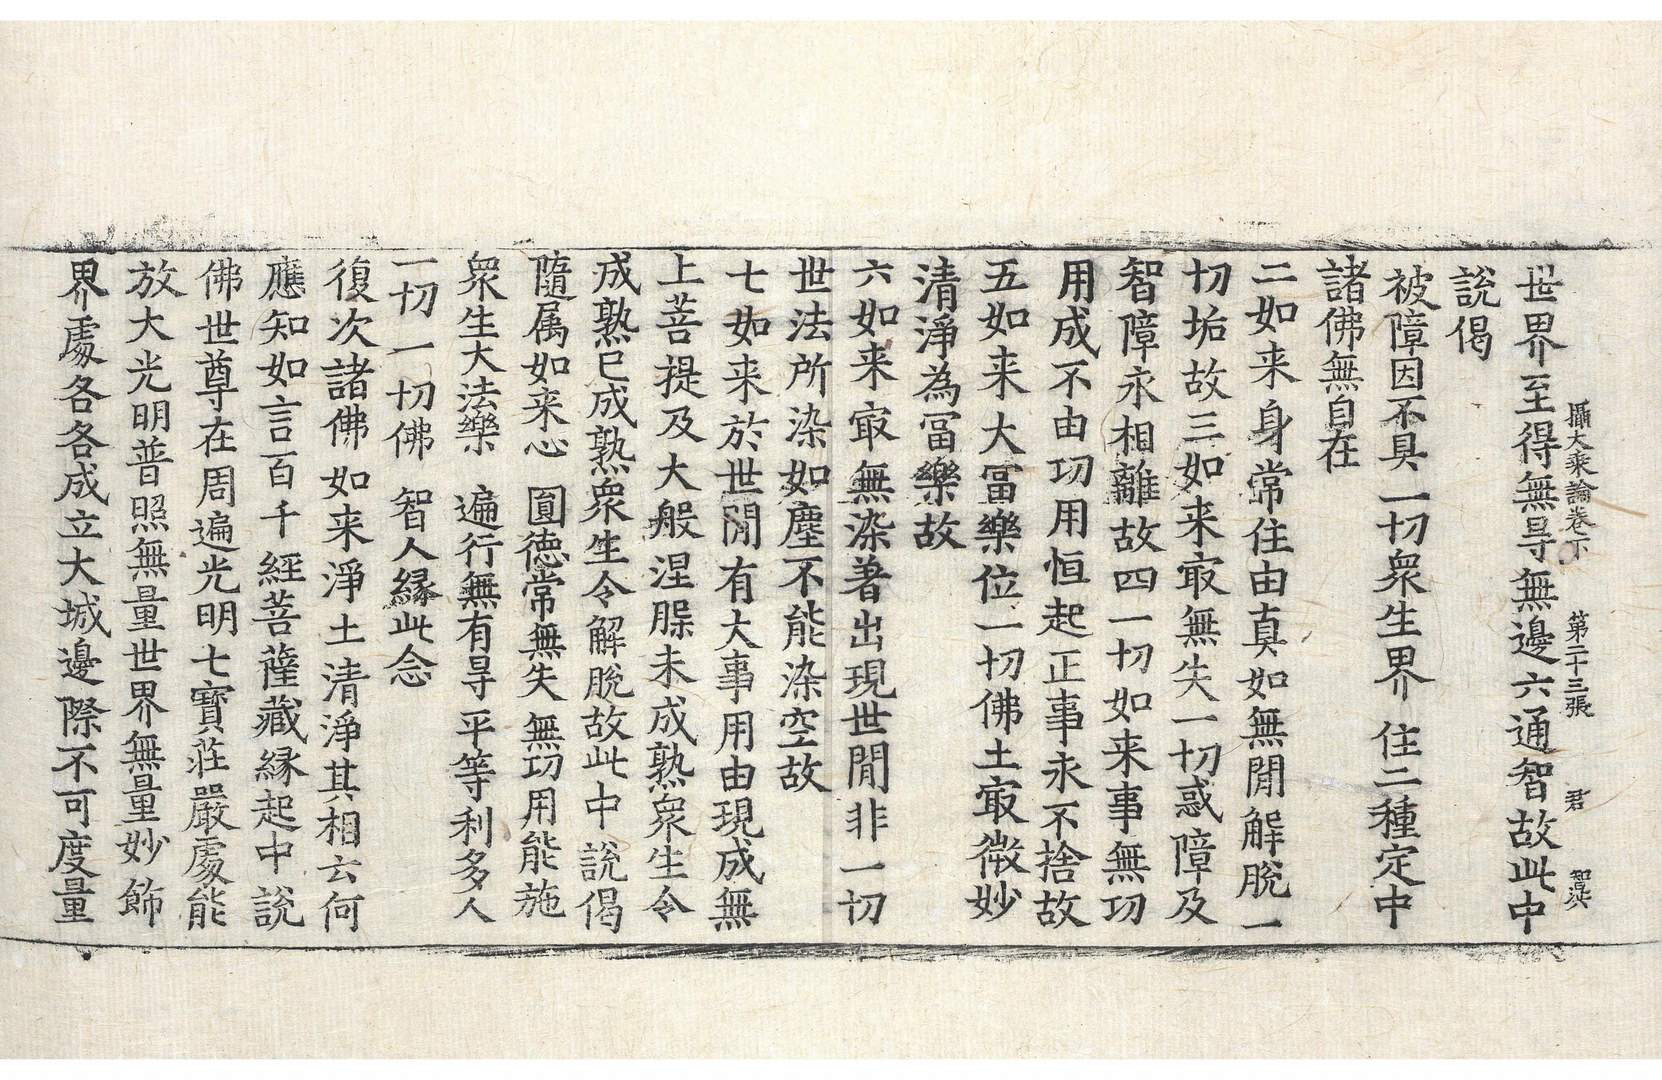 攝大乘論卷下 第二十三張 君
世界至得無㝵無邊六通智故此中
說偈
被障因不具一切衆生界 住二種定中
諸佛無自在
二如来身常住由真如無閒解脫一
切垢故三如来㝡無失一切惑障及
智障永相離故四一切如来事無功
用成不由功用恒起正事永不捨故
五如来大冨樂位一切佛土㝡微妙
清淨為冨樂故
六如来㝡無染著出現世閒非一切
世法所染如塵不能染空故
七如来於世閒有大事用由現成無
上菩提及大般涅槃未成熟衆生令
成熟已成熟衆生令解脫故此中說偈
隨属如来心 圓德常無失 無功用能施
衆生大法樂 遍行無有㝵 平等利多人
一切一切佛 智人縁此念
復次諸佛如来淨土清淨其相云何
應知如言百千經菩薩藏縁起中說
佛世尊在周遍光明七寶莊嚴處能
放大光明普照無量世界無量妙飾
界處各各成立大城邊際不可度量